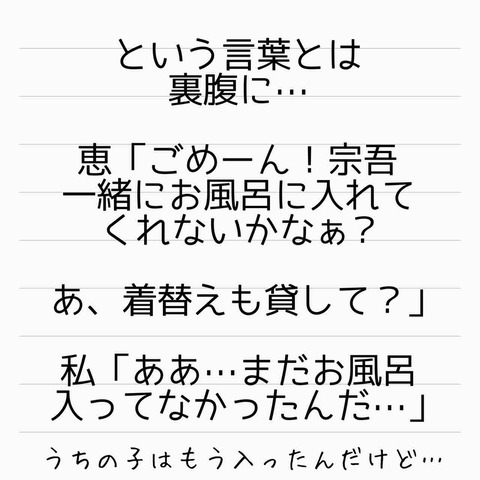 という言葉とは
裏腹に…
恵「ごめーん！宗吾
一緒にお風呂に入れて
くれないかなぁ？
あ、着替えも貸して？」
私「ああ…まだお風呂
入ってなかったんだ…」
うちの子はもう入ったんだけど…